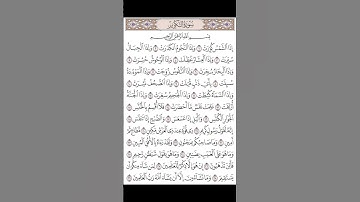 سُورَةُ التَّكْوِيرِ
بِسْمِ اللَّهِ الرَّحْمَٰنِ الرَّحِيمِ
إِذَا الشَّمْسُ كُوِّرَتْ ۝ وَإِذَا النُّجُومُ انكَدَرَتْ ۝ وَإِذَا الْجِبَالُ
سُيِّرَتْ ۝ وَإِذَا الْعِشَارُ عُطِّلَتْ ۝ وَإِذَا الْوُحُوشُ حُشِرَتْ
۝ وَإِذَا الْبِحَارُ سُجِّرَتْ ۝ وَإِذَا النُّفُوسُ زُوِّجَتْ ۝ وَإِذَا الْمَوْءُودَةُ
سُئِلَتْ ۝ بِأَيِّ ذَنبٍ قُتِلَتْ ۝ وَإِذَا الصُّحُفُ نُشِرَتْ ۝ وَإِذَا
السَّمَاءُ كُشِطَتْ ۝ وَإِذَا الْجَحِيمُ سُعِّرَتْ ۝ وَإِذَا الْجَنَّةُ
أُزْلِفَتْ ۝ عَلِمَتْ نَفْسٌ مَّا أَحْضَرَتْ ۝ فَلَا أُقْسِمُ بِالْخُنَّسِ
۝ الْجَوَارِ الْكُنَّسِ ۝ وَاللَّيْلِ إِذَا عَسْعَسَ ۝ وَالصُّبْحِ إِذَا تَنَفَّسَ
۝ إِنَّهُ لَقَوْلُ رَسُولٍ كَرِيمٍ ۝ ذِي قُوَّةٍ عِندَ ذِي الْعَرْشِ مَكِينٍ ۝ مُّطَاعٍ
ثَمَّ أَمِينٍ ۝ وَمَا صَاحِبُكُم بِمَجْنُونٍ ۝ وَلَقَدْ رَآهُ بِالْأُفُقِ الْمُبِينِ
۝ وَمَا هُوَ عَلَى الْغَيْبِ بِضَنِينٍ ۝ وَمَا هُوَ بِقَوْلِ شَيْطَانٍ رَّجِيمٍ
۝ فَأَيْنَ تَذْهَبُونَ ۝ إِنْ هُوَ إِلَّا ذِكْرٌ لِّلْعَالَمِينَ ۝ لِمَن شَاءَ مِنكُمْ أَن
يَسْتَقِيمَ ۝ وَمَا تَشَاءُونَ إِلَّا أَن يَشَاءَ اللَّهُ رَبُّ الْعَالَمِينَ ۝